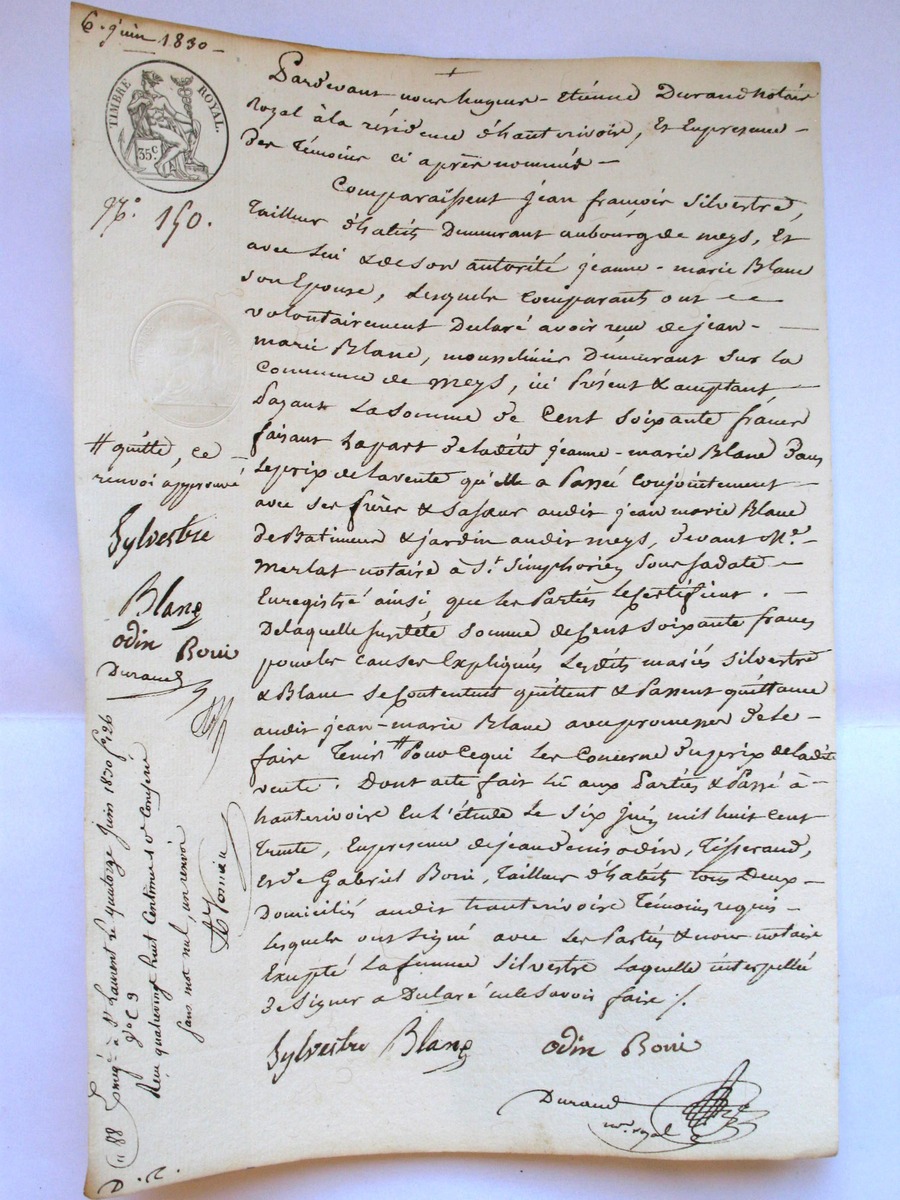 6. juin 1830
TIMBRE ROYAL.
35c
N.º 150.
Pardevant nous hugues-etienne Durand notaire
Royal à la résidence d'hauterivoire, et En presence
Des Témoins ci après nommés
Comparaissent jean françois Silvestre,
tailleur d'habits Demeurant au bourg de meys, Et
avec lui & de son autorité jeanne-marie Blanc
son Epouse, lesquels comparants ont
volontairement Déclaré avoir reçu de jean-
marie Blanc, mousselinier Demeurant sur la
Commune de meys, ici Présent & acceptant
Payant la somme de Cent soixante francs
faisant la part de ladite jeanne-marie Blanc Dans
le prix de la vente qu'elle a Passée Conjointement
avec ses frères & sa sœur audit jean marie Blanc
de Batiment & jardin audit meys, devant Me.
Merlat notaire a St. Simphorien sous sa date
Enregistré ainsi que les Parties le Certifient.
De laquelle susdite somme de Cent soixante francs
pour les causes Expliqués lesdits mariés Silvestre
& Blanc se Contentent quittent & Passent quittance
audit jean-marie Blanc avec promesse de le
faire Tenir # Pour ce qui les Concerne du prix de ladite
vente. Dont acte fait lu aux Parties & Passé à
hauterivoire En l'étude le six juin mil huit cent
trente, En presence de jean denis odin, Tisserand,
Et de Gabriel Boiri, tailleur d'habits tous Deux
Domiciliés audit hauterivoire Témoins requis
lesquels ont signé avec les Parties & nous notaire
Excepté la femme Silvestre laquelle interpellée
de signer a Déclaré ne le savoir faire /.
Sylvestre Blanc odin Boiri
Durand
nre. royal
# quitte, ce
renvoi approuvé
Sylvestre
Blanc
odin Boiri
Durand
Enregé. à St. Laurent le quatorze Juin 1830 fo. 126
Vo. C 9
Reçu quatre vingt huit Centimes De compris
sans mot nul, un renvoi
88
D. R.